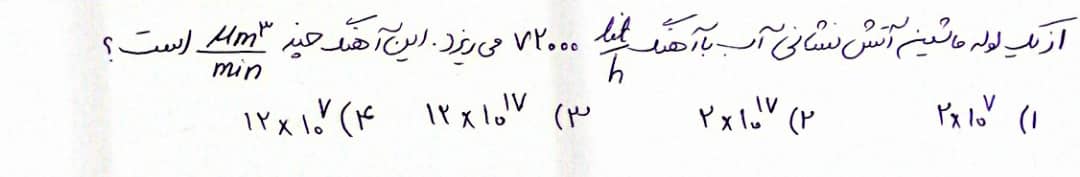 از یک لوله ماشین آتش نشانی آب با آهنگ lit/h ۷۲۰۰۰ می ریزد. این آهنگ چند μm³/min است؟
۱) ۲×۱۰^۷ ۲) ۲×۱۰^۱۷ ۳) ۱۲×۱۰^۱۷ ۴) ۱۲×۱۰^۷